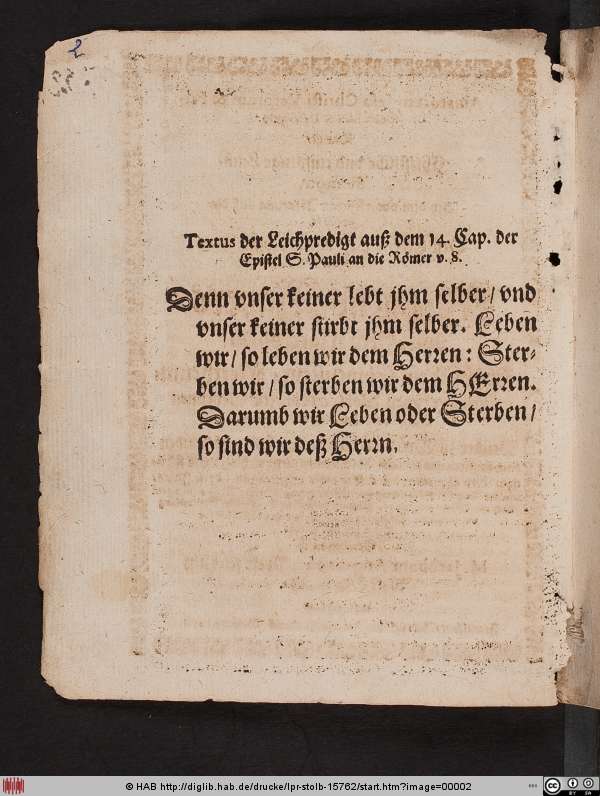 2
Textus der Leichpredigt auß dem 14. Cap. der
Epistel S. Pauli an die Römer v. 8.
Denn vnser keiner lebt jhm selber/ vnd
vnser keiner stirbt jhm selber. Leben
wir/ so leben wir dem Herren: Ster-
ben wir/ so sterben wir dem HErren.
Darumb wir Leben oder Sterben/
so sind wir deß Herrn.
© HAB http://diglib.hab.de/drucke/lpr-stolb-15762/start.htm?image=00002
CC BY SA